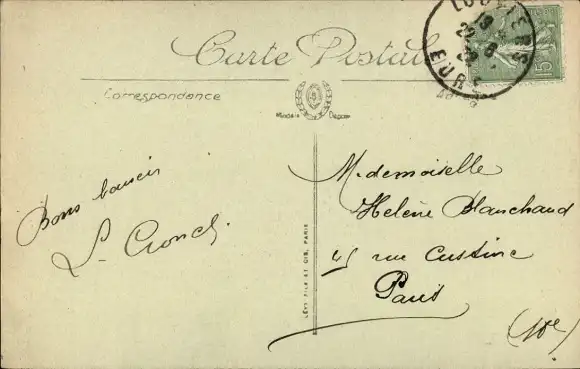 Carte Postale
Correspondance
LOUVIERS
EURE
15
Bons baisers
Mademoiselle
Helène Blanchaud
45 rue Custine
Paris
LÉVY FILS ET CIE, PARIS